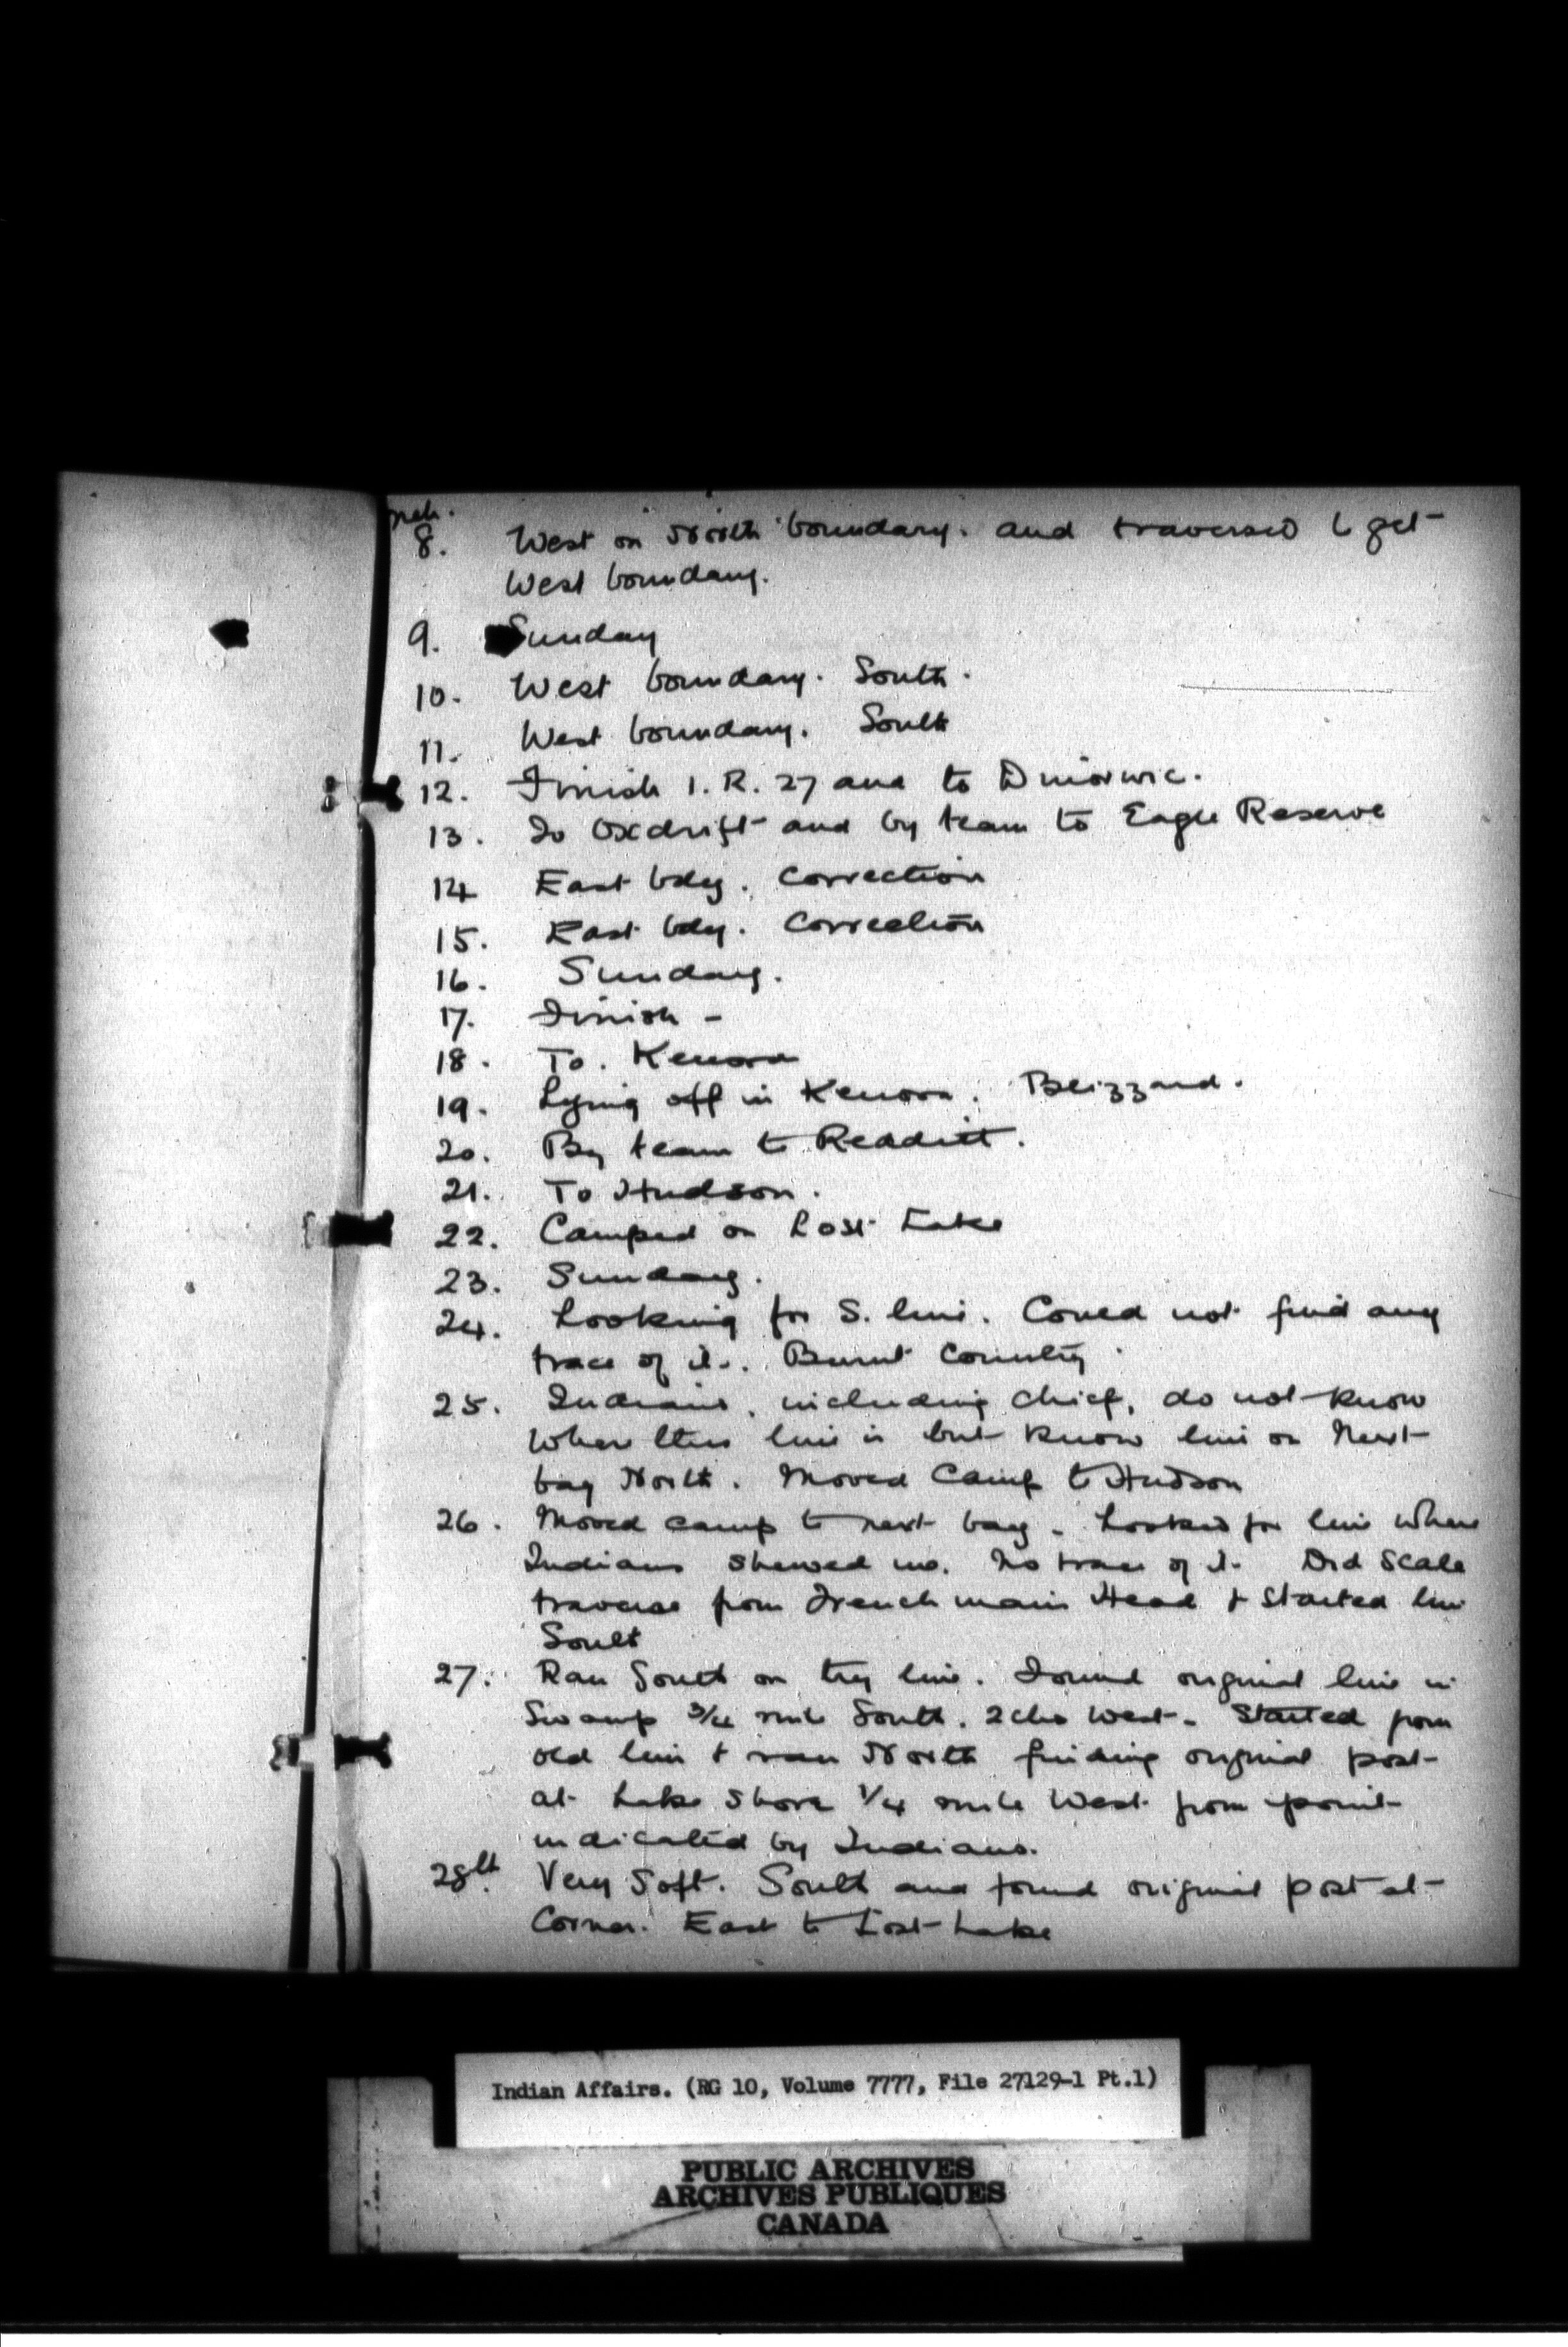 Mch.
8. West on North boundary. and traversed to get
West boundary.
9. Sunday
10. West boundary. South.
11. West boundary. South
12. Finish I. R. 27 and to Dinorwic.
13. To Oxdrift and by team to Eagle Reserve
14 East bdy. Correction
15. East bdy. Correction
16. Sunday.
17. Finish -
18. To. Kenora
19. Lying off in Kenora. Blizzard.
20. By team to Redditt.
21. To Hudson.
22. Camped on Lost Lake
23. Sunday.
24. Looking for S. line. Could not find any
trace of it. Burnt Country.
25. Indians, including Chief, do not know
where this line is but know line on next
bay North. Moved Camp to Hudson
26. Moved camp to next bay - Looked for line where
Indians shewed me. No trace of it. Did Scale
traverse from Frenchmans Head & started line
South
27. Ran South on try line. Found original line in
Swamp 3/4 mile South. 2 chs West - Started from
old line & ran North finding original post
at Lake Shore 1/4 mile West from point
indicated by Indians.
28th Very Soft. South and found original post at
Corner. East to Lost Lake
Indian Affairs. (RG 10, Volume 7777, File 27129-1 Pt.1)
PUBLIC ARCHIVES
ARCHIVES PUBLIQUES
CANADA